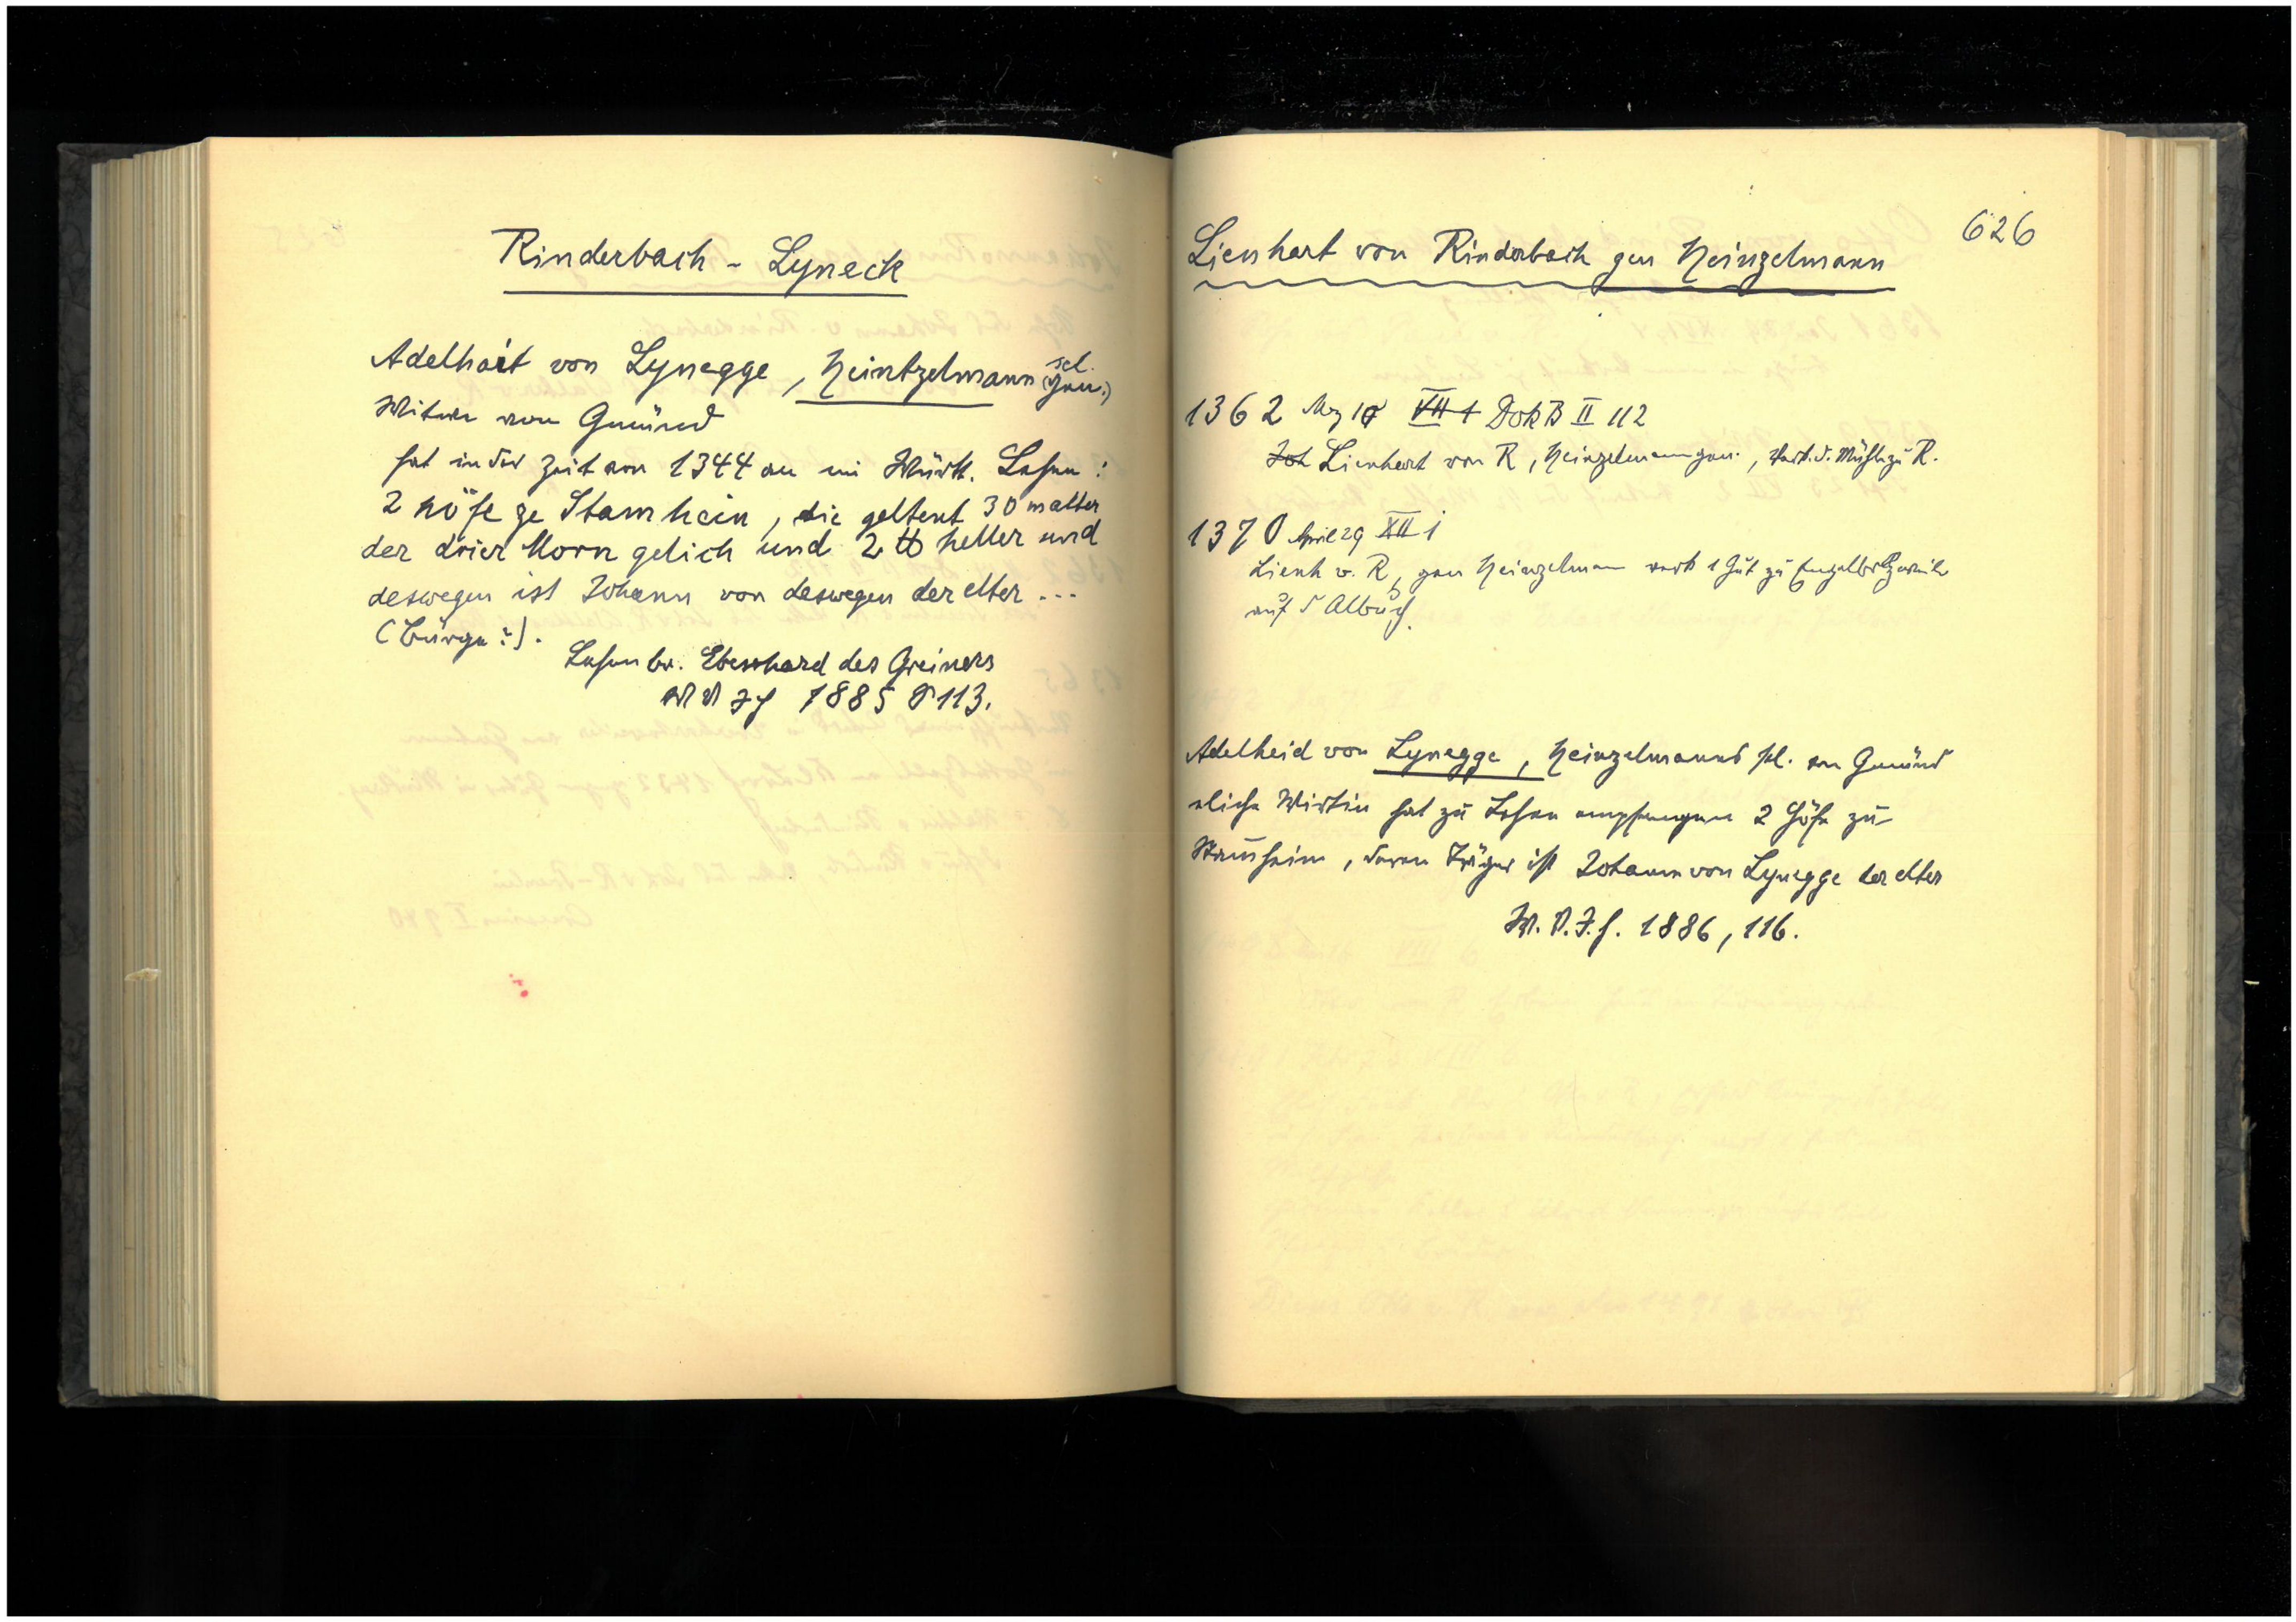 Rinderbach - Lyneck
Adelhait von Lynegge, Heintzelmann sel. (gen.)
Witwe von Gmünd
hat in der Zeit von 1344 an im Württ. Lehen:
2 höfe ze Stamhein, die geltent 30 malter
der drier Korn gelich und 2 ℔ heller und
deswegen ist Johann von deswegen der elter ...
(Bürge?).
Lehenb. Eberhard des Greiners
W V Jh 1885 S 113.
626
Lienhart von Rinderbach gen Heinzelmann
1362 Mz VII 1 Dok B II 112
Joh Lienhart von R, Heinzelmann gen., verk. d. Mühle zu R.
1370 April 29 XII i
Lienh v. R, gen Heinzelmann verk 1 Gut zu
auf d Albuch.
Adelheid von Lynegge, Heinzelmanns sel. von Gmünd
eliche Wirtin hat zu Lehen empfangen 2 Höfe zu
Stamheim, deren Träger ist Johann von Lynegge der elter
W. V. J. h. 1886, 116.